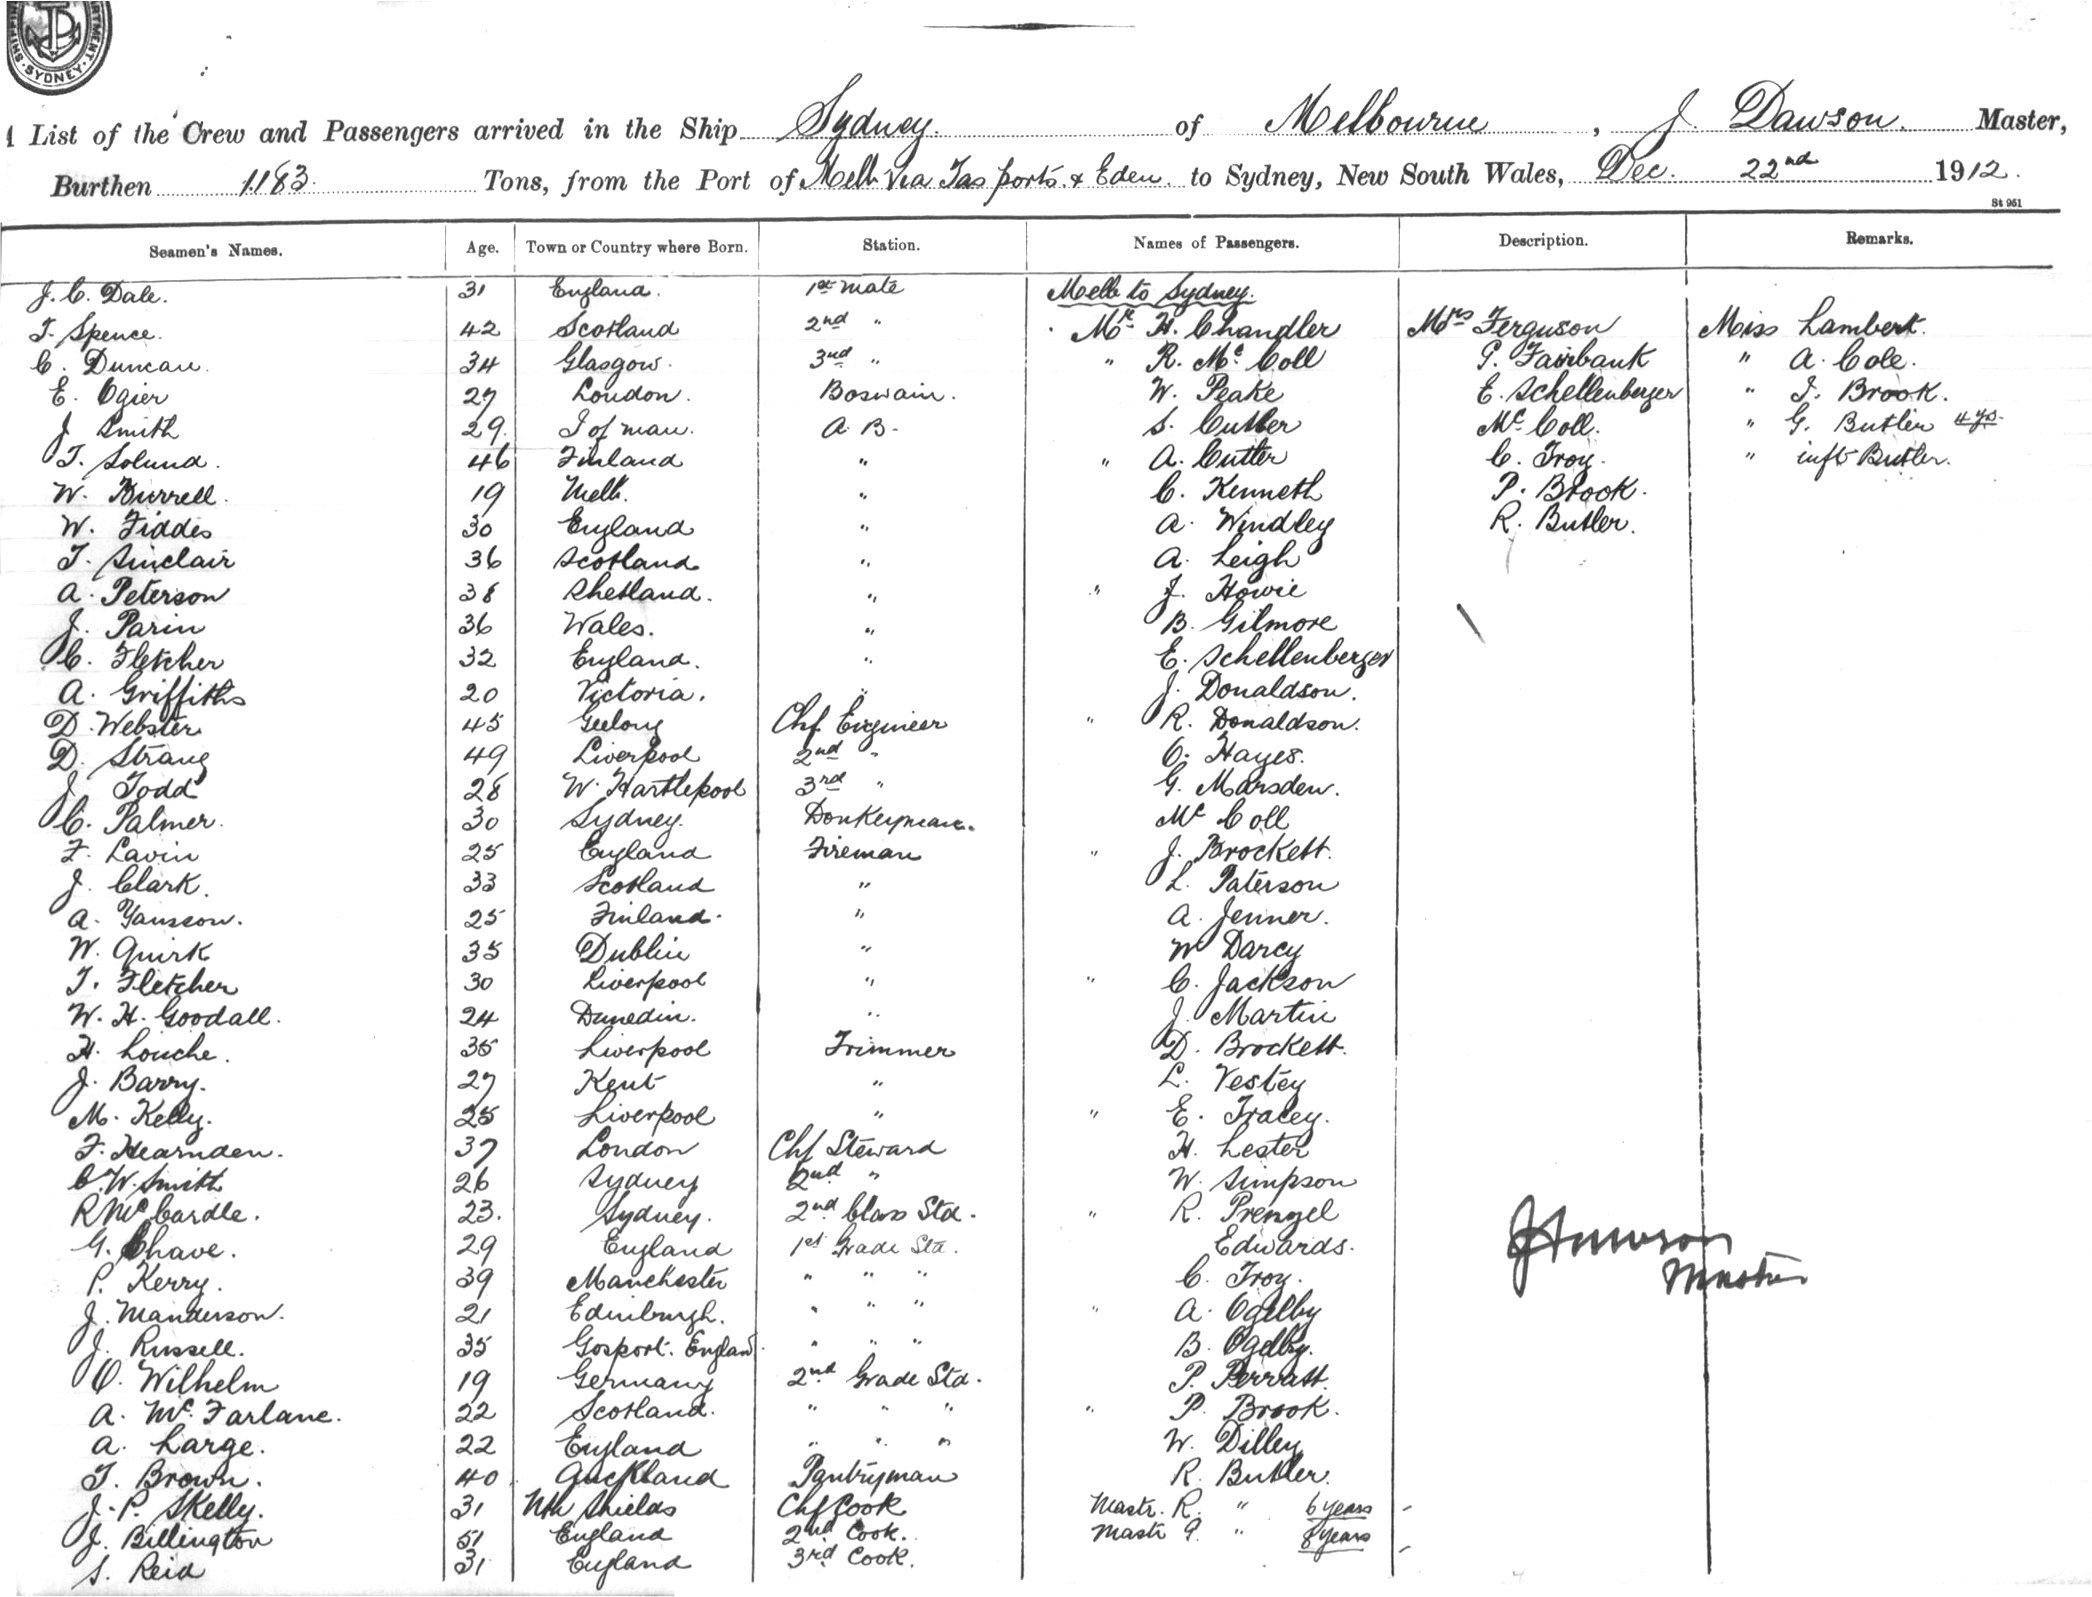 SYDNEY
A List of the Crew and Passengers arrived in the Ship Sydney. of Melbourne, J. Dawson. Master,
Burthen 1183 Tons, from the Port of Melb. Via Tas ports & Eden. to Sydney, New South Wales, Dec. 22nd 1912.
St 961
Seamen's Names. Age. Town or Country where Born. Station. Names of Passengers. Description. Remarks.
J. C. Dale. 31 England. 1st mate Melb to Sydney.
T. Spence. 42 Scotland 2nd " Mr. H. Chandler Mrs Ferguson Miss Lambert.
C. Duncan. 34 Glasgow. 3rd " " R. Mc Coll P. Fairbank " A. Cole.
E. Ogier 27 London. Boswain. W. Peake E. Schellenberger " J. Brook.
J Smith 29. I of man. A. B. S. Cutler Mc Coll. " G. Butler 4 ys.
T. Solund. 46 Finland " " A. Cutler C. Troy. " inft Butler.
W. Burrell. 19 Melb. " C. Kenneth P. Brook.
W. Fiddes 30 England " A. Windley R. Butler.
T. Sinclair 36 Scotland " A. Leigh
A. Peterson 38 Shetland. " " J. Howie
J. Parin 36 Wales. " B. Gilmore
C. Fletcher 32 England. " E. Schellenberger
A. Griffiths 20 Victoria. " J. Donaldson.
D. Webster 45 Geelong Chf Engineer " R. Donaldson.
D. Strang 49 Liverpool 2nd " O. Hayes.
J. Todd 28 W. Hartlepool 3rd " G. Marsden.
C. Palmer. 30 Sydney. Donkeyman. Mc Coll
F. Lavin 25 England Fireman " J. Brockett.
J. Clark. 33 Scotland " L. Paterson
A. Yansson. 25 Finland. " A. Jenner.
W. Quirk 35 Dublin " W Darcy
T. Fletcher 30 Liverpool " " C. Jackson
W. H. Goodall. 24 Dunedin. " J. Martin
H. Louche. 35 Liverpool Trimmer D. Brockett.
J. Barry. 27 Kent " L. Vestey
M. Kelly. 25 Liverpool " " E. Tracey.
F. Hearnden. 37 London Chf Steward H. Lester
C. W. Smith 26 Sydney 2nd " W. Simpson
R Mc Cardle. 23. Sydney. 2nd Class Std. " R. Prenzel
G. Chave. 29 England 1st Grade Std. Edwards.
P. Kerry. 39 Manchester " " " C. Troy.
J. Manderson. 21 Edinburgh. " " " " A. Ogelby
J. Russell. 35 Gosport. England " " " B. Ogelby.
O. Wilhelm 19 Germany 2nd Grade Std. P. Perratt.
A. Mc. Farlane. 22 Scotland. " " " " P. Brook.
A. Large. 22 England " " " W. Dilley
T. Brown. 40 Auckland Pantryman R. Butler.
J. P. Skelly. 31 Nth Shields Chf Cook Mastr. R. " 6 years
J. Billington 51 England 2nd Cook. Mastr P. " 8 years
S. Reid 31 England 3rd Cook.
J Dawson
Master